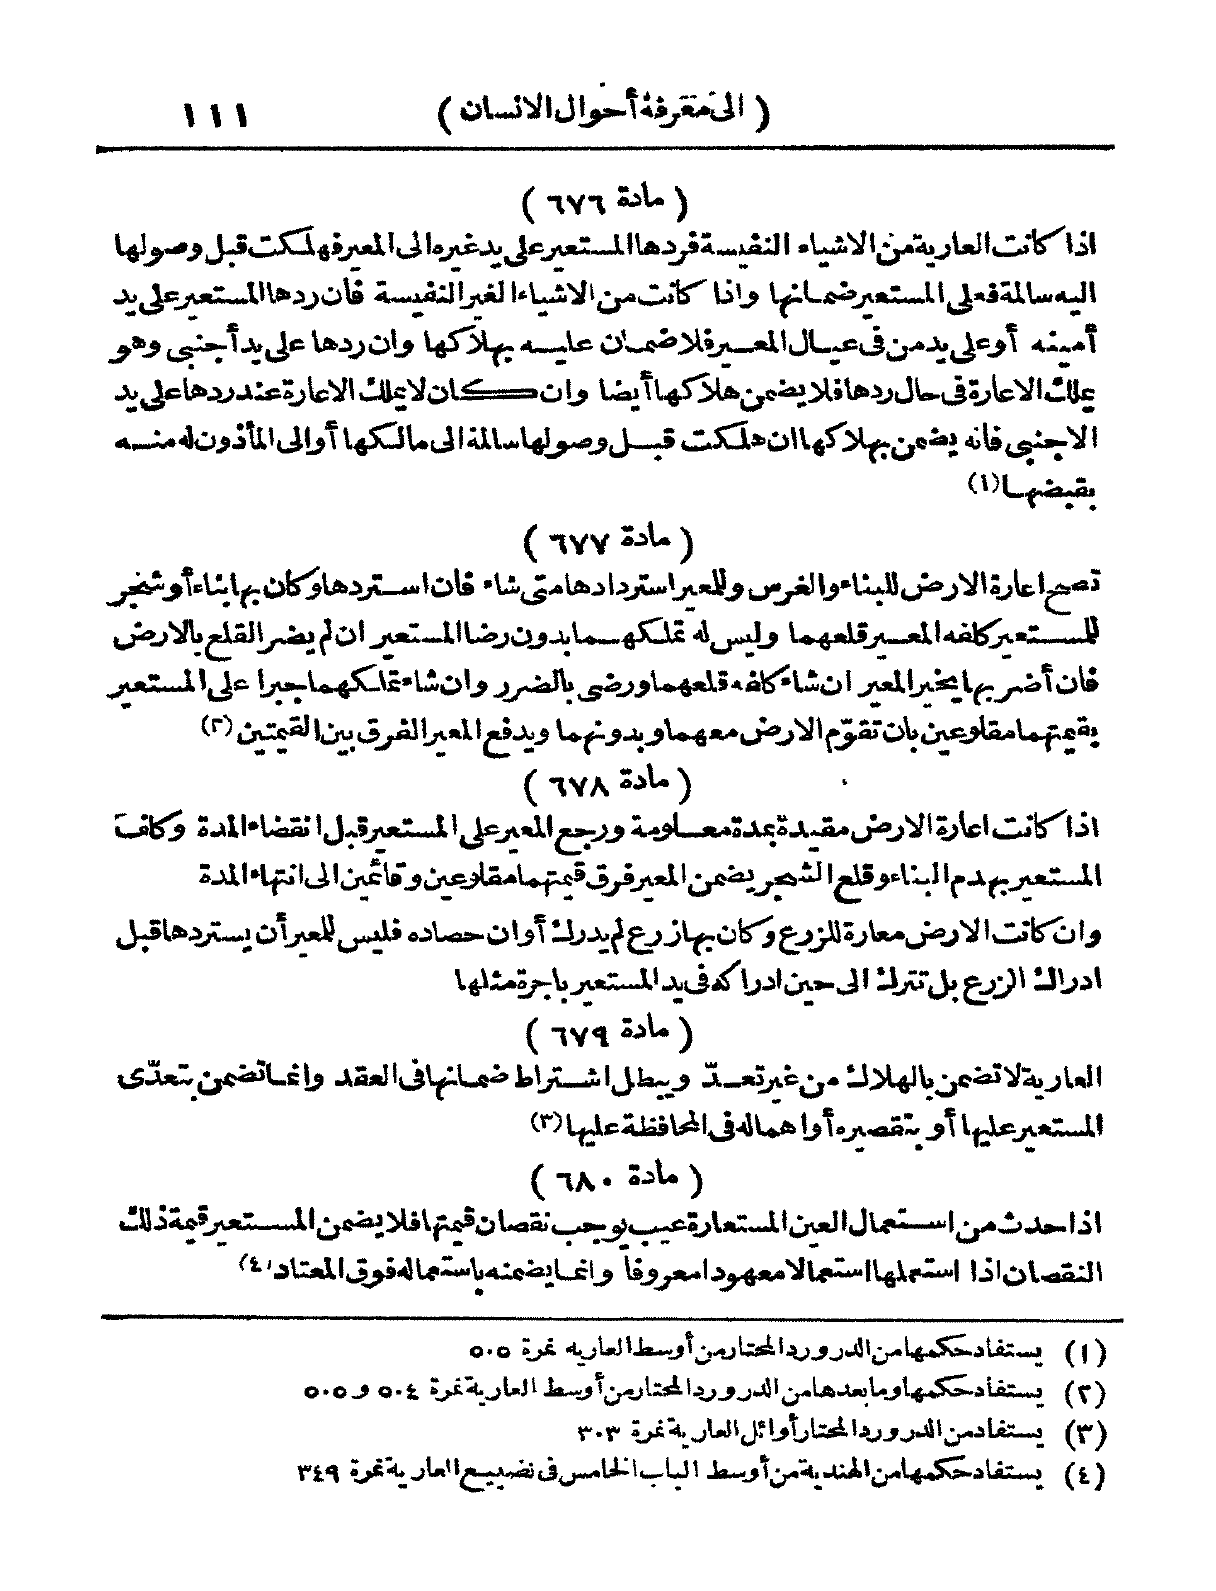 ( الى معرفة أحوال الانسان ) ١١١
( مادة ٦٧٦ )
اذا كانت العارية من الاشياء النفيسة فردها المستعير على يد غيره الى المعير فهلكت قبل وصولها
اليه سالمة فعلى المستعير ضمانها واذا كانت من الاشياء الغير النفيسة فان ردها المستعير على يد
أمينه أو على يد من فى عيال المعير فلا ضمان عليه بهلاكها وان ردها على يد أجنبى وهو
يملك الاعارة فى حال ردها فلا يضمن هلاكها أيضا وان كان لا يملك الاعارة عند ردها على يد
الاجنبى فانه يضمن بهلاكها ان هلكت قبل وصولها سالمة الى مالكها أو الى المأذون له منه
بقبضها (١)
( مادة ٦٧٧ )
تصح اعارة الارض للبناء والغرس وللمعير استردادها متى شاء فان استردها وكان بها بناء أو شجر
للمستعير كلفه المعير قلعهما وليس له تملكهما بدون رضا المستعير ان لم يضر القلع بالارض
فان أضر بها يخير المعير ان شاء كلفه قلعهما ورضى بالضرر وان شاء تملكهما جبرا على المستعير
بقيمتهما مقلوعين بان تقوّم الارض معهما وبدونهما ويدفع المعير الفرق بين القيمتين (٢)
( مادة ٦٧٨ )
اذا كانت اعارة الارض مقيدة بمدة معلومة ورجع المعير على المستعير قبل انقضاء المدة وكلف
المستعير بهدم البناء وقلع الشجر يضمن المعير فرق قيمتهما مقلوعين وقائمين الى انتهاء المدة
وان كانت الارض معارة للزرع وكان بها زرع لم يدرك أوان حصاده فليس للمعير أن يستردها قبل
ادراك الزرع بل تترك الى حين ادراكه فى يد المستعير باجرة مثلها
( مادة ٦٧٩ )
العارية لا تضمن بالهلاك من غير تعدّ ويبطل اشتراط ضمانها فى العقد وانما تضمن بتعدّى
المستعير عليها أو بتقصيره أو اهماله فى المحافظة عليها (٣)
( مادة ٦٨٠ )
اذا حدث من استعمال العين المستعارة عيب يوجب نقصان قيمتها فلا يضمن المستعير قيمة ذلك
النقصان اذا استعملها استعمالا معهودا معروفا وانما يضمنه باستعماله فوق المعتاد (٤)
(١) يستفاد حكمها من الدر ورد المحتار من أوسط العاريه نمرة ٥٠٥
(٢) يستفاد حكمها وما بعدها من الدر ورد المحتار من أوسط العارية نمرة ٥٠٤ و ٥٠٥
(٣) يستفاد من الدر ورد المحتار أوائل العارية نمرة ٣٠٣
(٤) يستفاد حكمها من الهندية من أوسط الباب الخامس فى تضييع العارية نمرة ٣٤٩